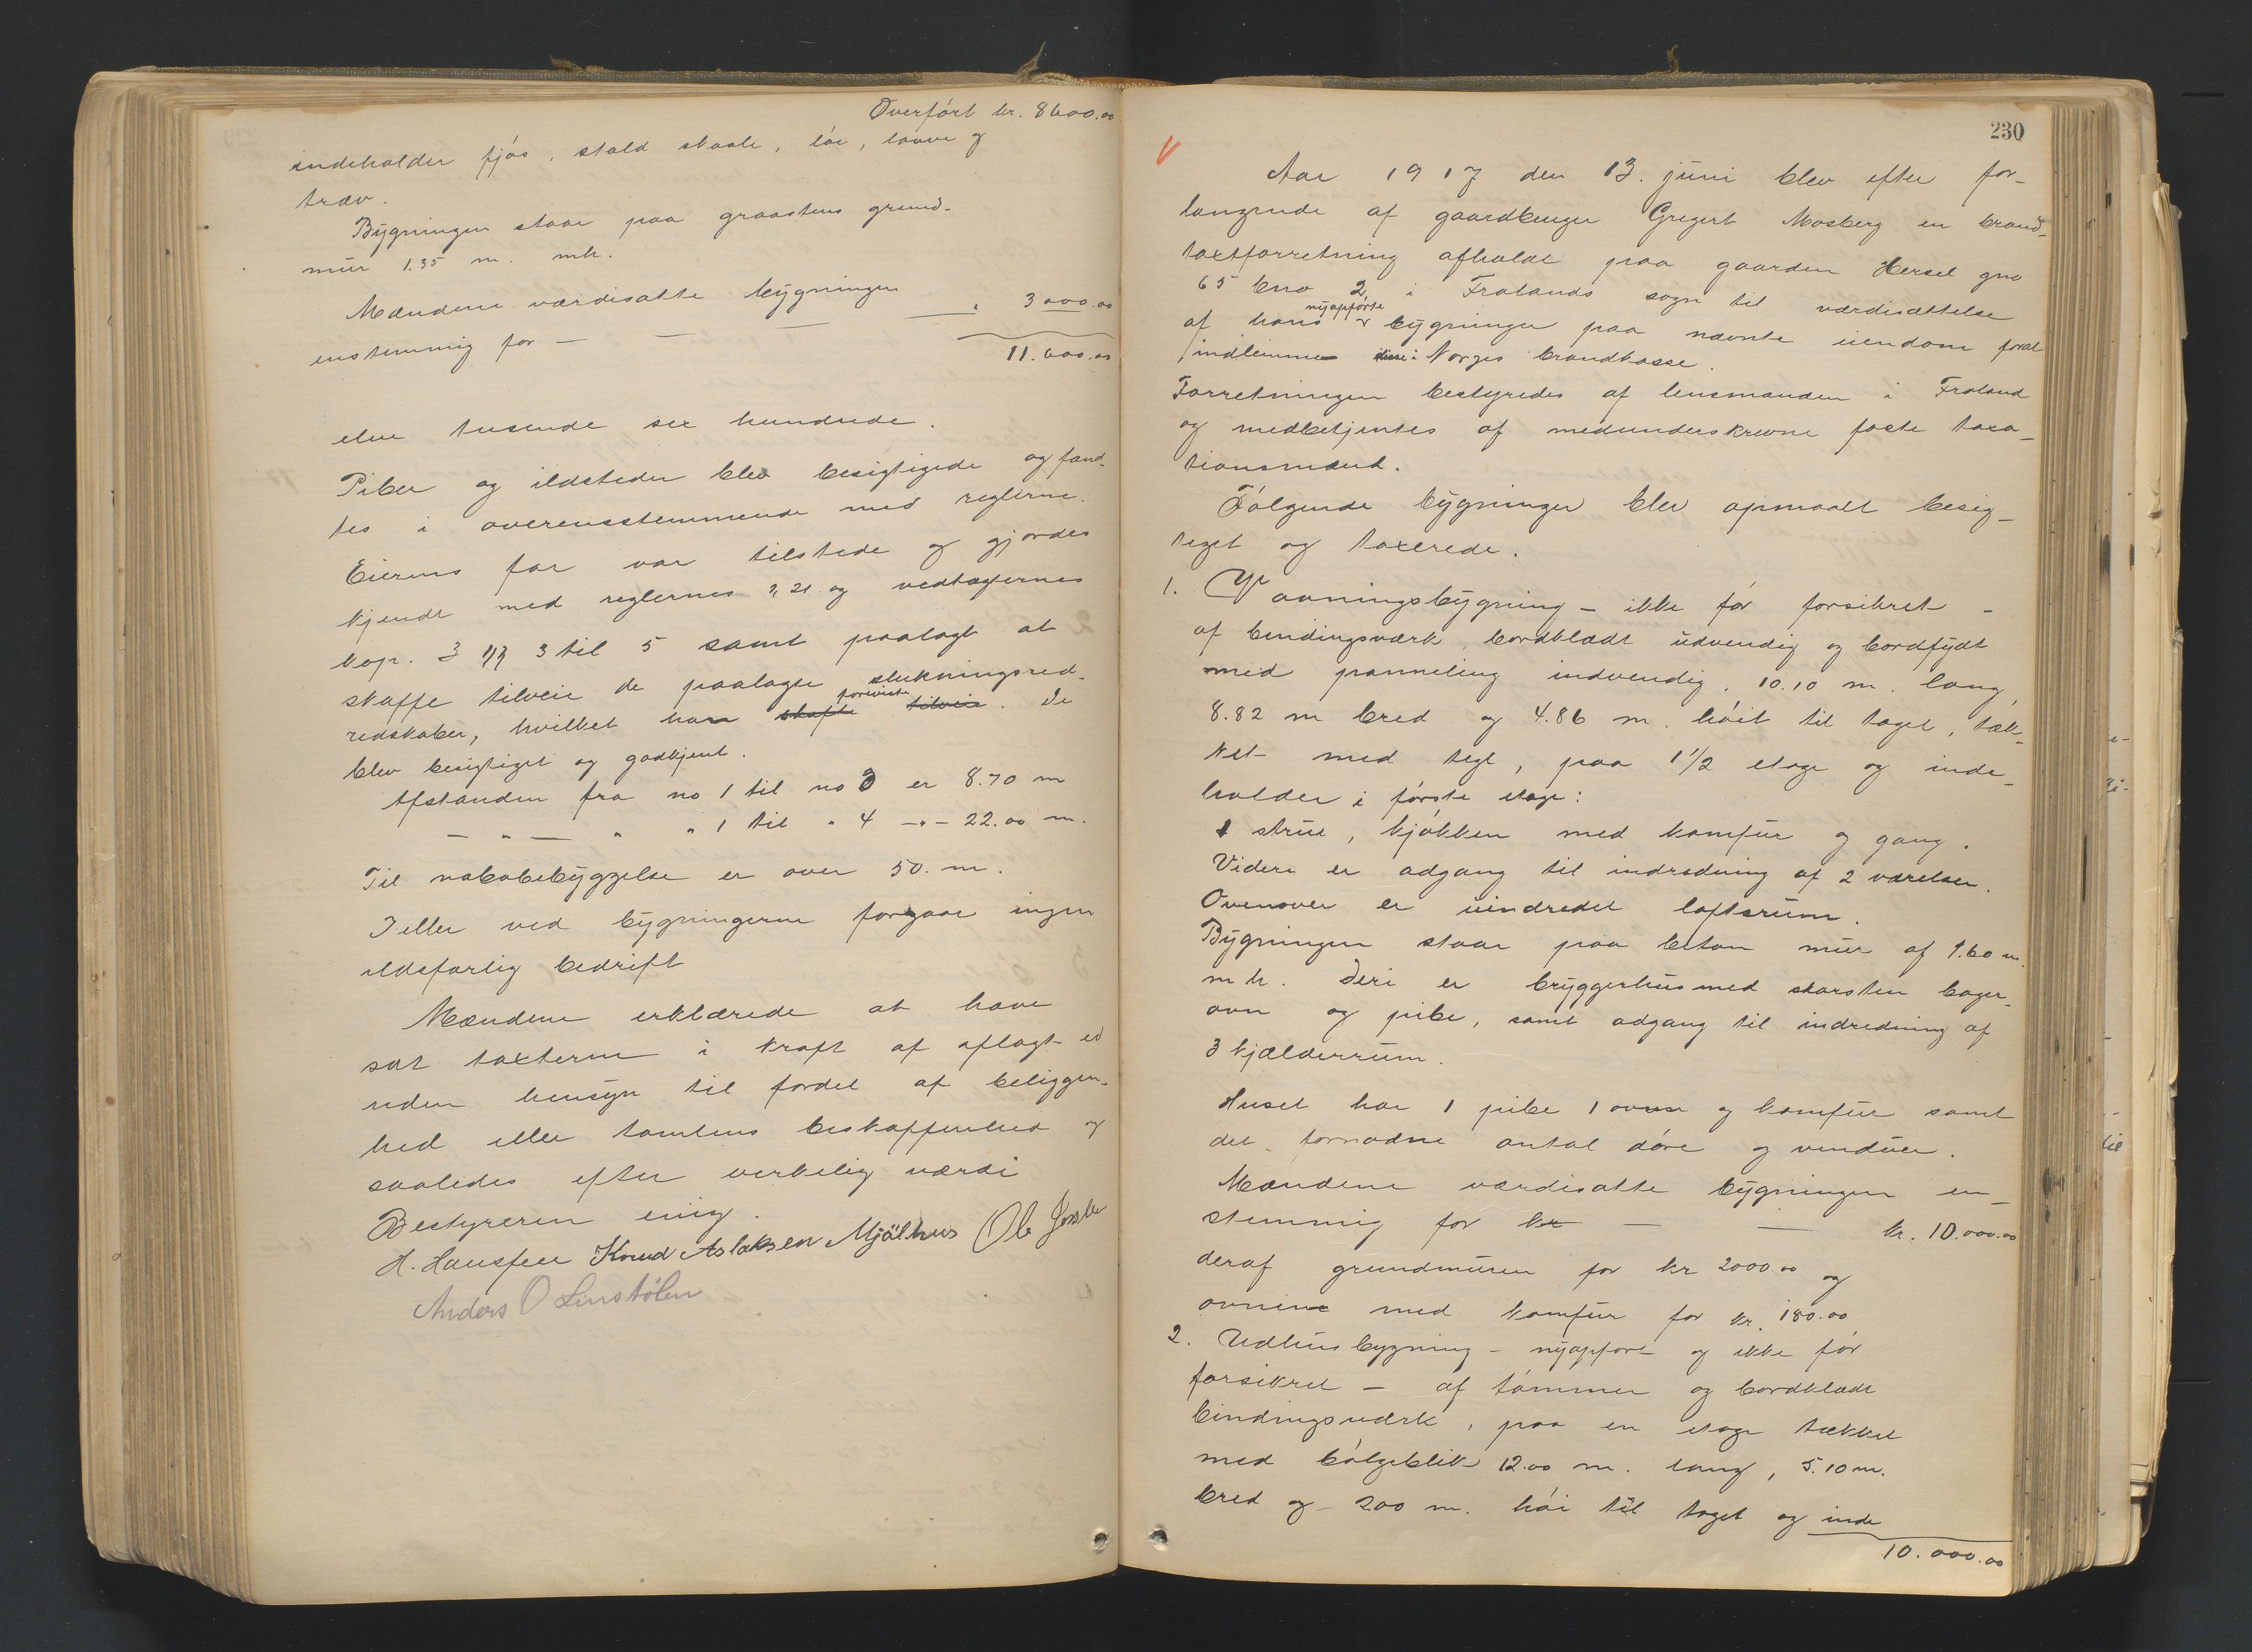 Overført kr. 8600.00
indeholder fjøs, stald skaale, løe, laave og
træv.
Bygningen staar paa graastens grund-
mur 1.35 m. mh.
Mændene værdisatte bygningen
enstemmig for — — — " 3000.00
11.600.00
elve tusende sex hundrede.
Piber og ildsteder blev besigtigede og fand-
tes i overensstemmende med reglerne.
Eierens far var tilstede og gjordes
kjendt med reglernes § 21 og vedtægternes
kap. 3 §§ 3 til 5 samt paalagt at
skaffe tilveie de paalagte slukningsred-
redskaber, hvilket han skafte tilveie foreviste. De
blev besigtiget og godkjent.
Afstanden fra no 1 til no 3 er 8.70 m
— " — " " 1 til " 4 —"— 22.00 m.
Til nabobebyggelse er over 50. m.
I eller ved bygningerne foregaar ingen
ildsfarlig bedrift
Mændene erklærede at have
sat taxterne i kraft af aflagt ed
uden hensyn til fordel af beliggen-
hed eller tomtens beskaffenhed og
saaledes efter verkelig værdi
Bestyreren enig.
H. Hansen Knud Aslaksen Mjålhus Ole
Anders O Linstølen
230
V
Aar 1917 den 13. juni blev efter for-
langende af gaardbruger Gregert Mosberg en brand-
taxtforretning afholdt paa gaarden Hersel gno
65 bno 2 i Frolands sogn til værdisættelse
af hans nyopførte bygninger paa nævnte eiendom foral
indlemmes disse i Norges brandkasse.
Forretningen bestyredes af lensmanden i Froland
og medbetjentes af medunderskrevne faste taxa-
tionsmænd.
Følgende bygninger blev opmaalt besig-
tiget og taxerede.
1. Vaaningsbygning – ikke før forsikret –
af bindingsværk, bordklædt udvendig og bordfydt
med panneling indvendig, 10.10 m. lang,
8.82 m bred og 4.86 m. høit til taget, tæk-
ket med tegl, paa 1 1/2 etage og inde-
holder i første etage:
1 strue, kjøkken med komfur og gang.
Videre er adgang til indredning af 2 værelser.
Ovenover er uindredet loftsrum.
Bygningen staar paa beton mur af 1.60 m.
m h. Deri er bryggerhus med skorsten bager-
ovn og pibe, samt adgang til indredning af
3 kjælderrum.
Huset har 1 pibe 1 ovn og komfur samt
det fornødne antal døre og vinduer.
Mændene værdisatte bygningen en-
stemmig for kr — — kr. 10.000.00
deraf grundmuren for kr 2000.00 og
ovnene med komfur for kr. 180.00
2. Udhusbygning – nyopført og ikke før
forsikret – af tømmer og bordklædt
bindingsværk, paa en etage tækket
med bølgeblik 12.00 m. lang, 5.10 m.
bred og 200 m. høi til taget og inde
10.000.00